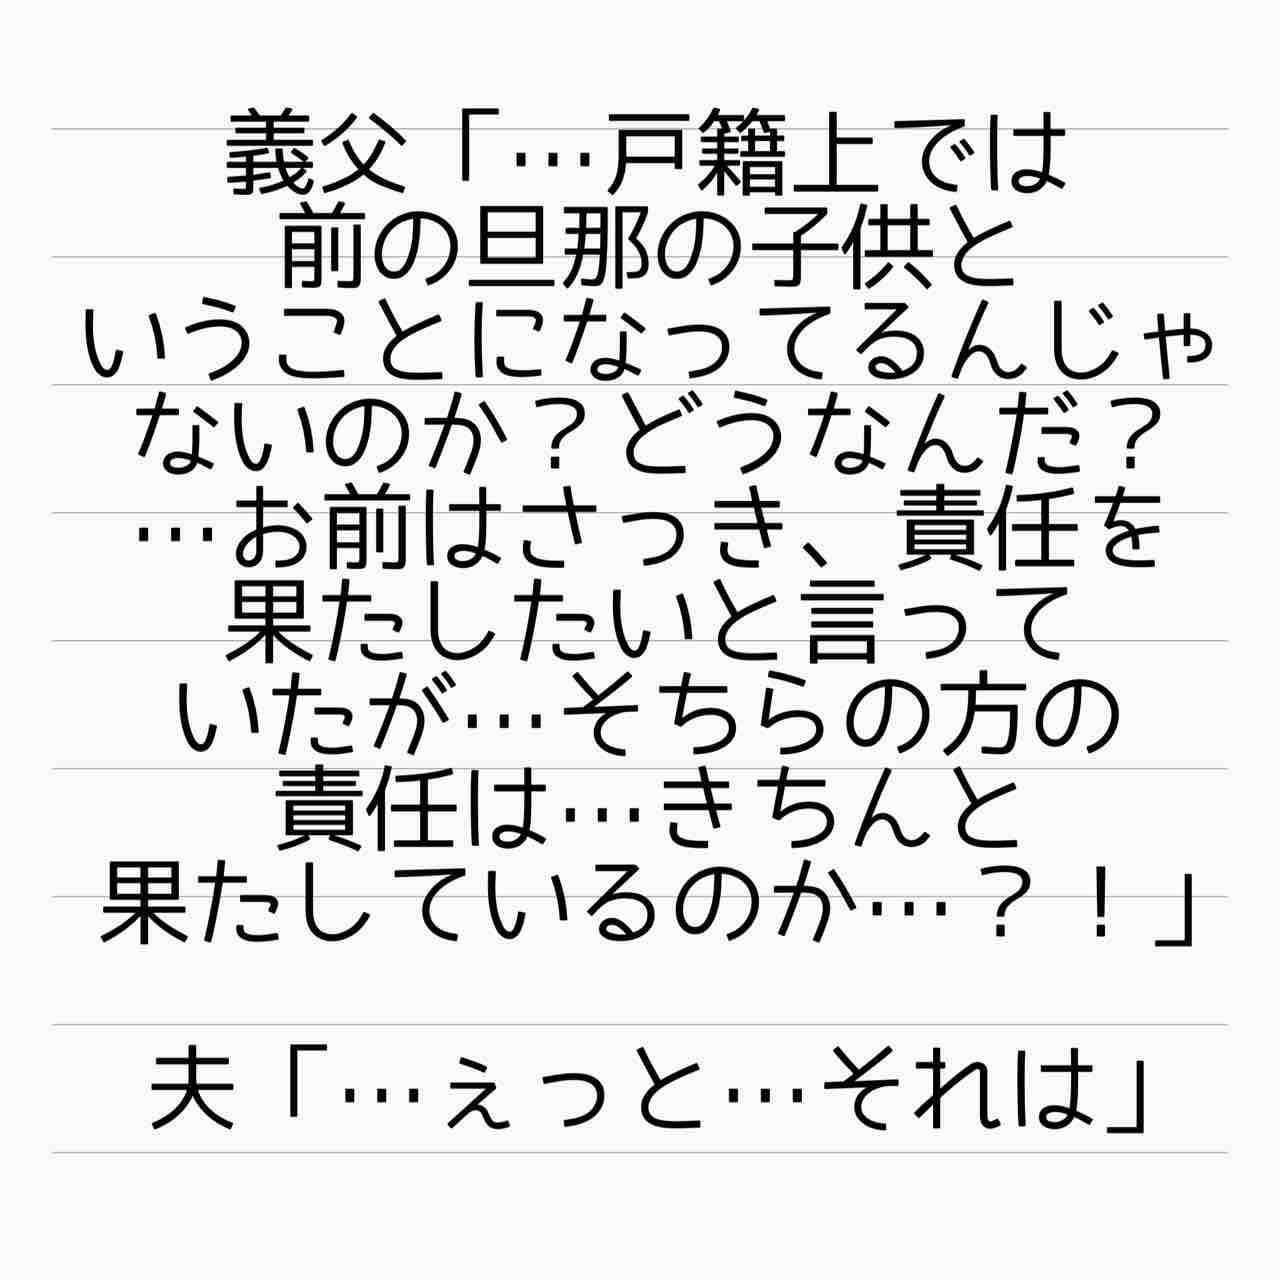 義父「…戸籍上では
前の旦那の子供と
いうことになってるんじゃ
ないのか？どうなんだ？
…お前はさっき、責任を
果たしたいと言って
いたが…そちらの方の
責任は…きちんと
果たしているのか…？！」
夫「…ぇっと…それは」